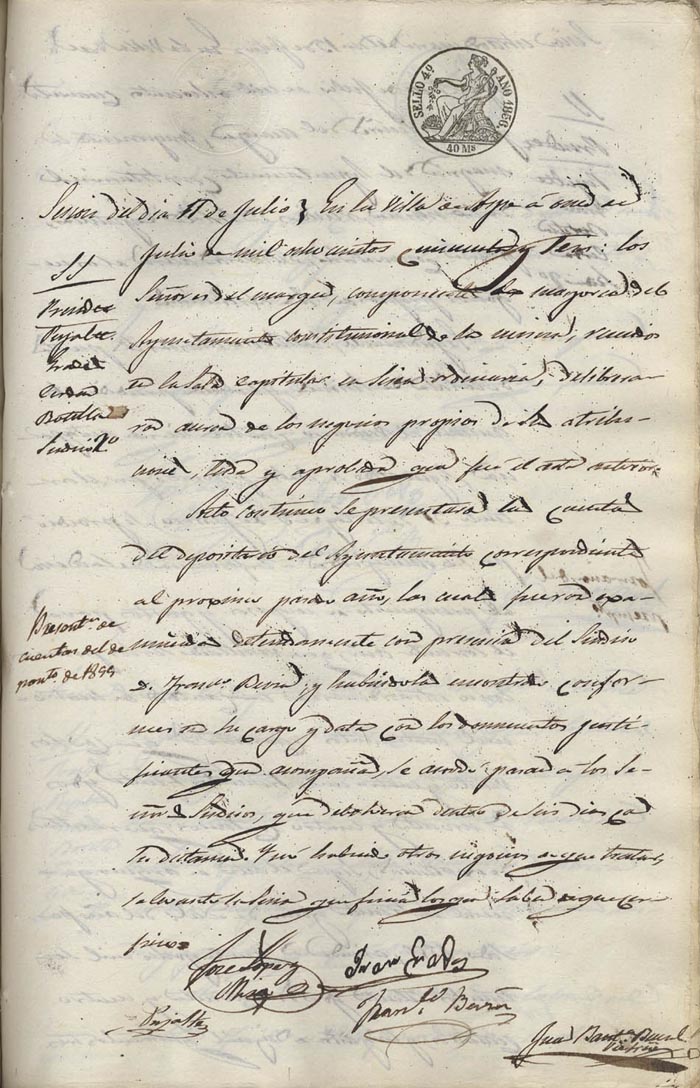 SELLO 4º AÑO 1856.
40 Ms
Sesion del dia 11 de Julio
En la Villa de Aspe á once de
Julio de mil ochocientos cincuenta y seis: los
SS
Señores del margen, componentes la mayoria del
Ayuntamiento constitucional de la misma, reunidos
en la Sala capitular en sesion ordinaria, deliberaron
acerca de los negocios propios de sus atribuciones,
leida y aprobada que fué el acta anterior
Botella
Sindico
Acto continuo se presentaron las cuentas
del depositario del Ayuntamiento correspondiente
al proximo pasado año, las cuales fueron exa-
minadas detenidamente con presencia del Sindico
Presentn. de
cuentas del de
de 1855
y habiendolas encontrado confor-
mes en su cargo y data con los documentos justi-
ficantes que acompañan, se acordó pasar a los Se-
ñores Sindicos, que debolveran dentro de seis dias con
su dictamen. Y no habiendo otros negocios de que tratar,
se levantó la sesion que firman los que saben de que cer-
tifico
Jose Lopez
Pujalte
Juan Baut.